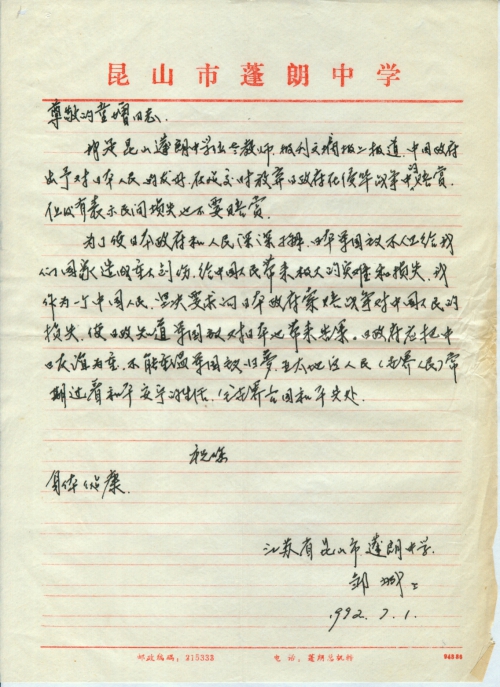 昆山市蓬朗中学
尊敬的童增同志.
我是昆山蓬朗中学 教师.报刊文摘报上报道.中国政府
出于对日本人民的友好.在 交时放弃日政府在侵华战争中 赔赏.
但没有表示民间损失也不要赔赏.
为了使日本政府和人民深深 .日本军国 不仅给我
们国家造成重大创伤.给中国人民带来极大的灾难和损失.我
作为一个中国人民.坚决要求 日本政府 赔战争对中国人民的
损失.使日政知道军国 对日本也带来 .日政府应把中
日友谊为重.不能重温军国 旧梦.亚太地区人民(世界人民)常
期过着和平安宁的生活. 世界各国和平共处.
祝您
身体健康.
江苏省昆山市蓬朗中学.
邹 上
1992.7.1.
邮政编码:215333 电话:蓬朗总机转